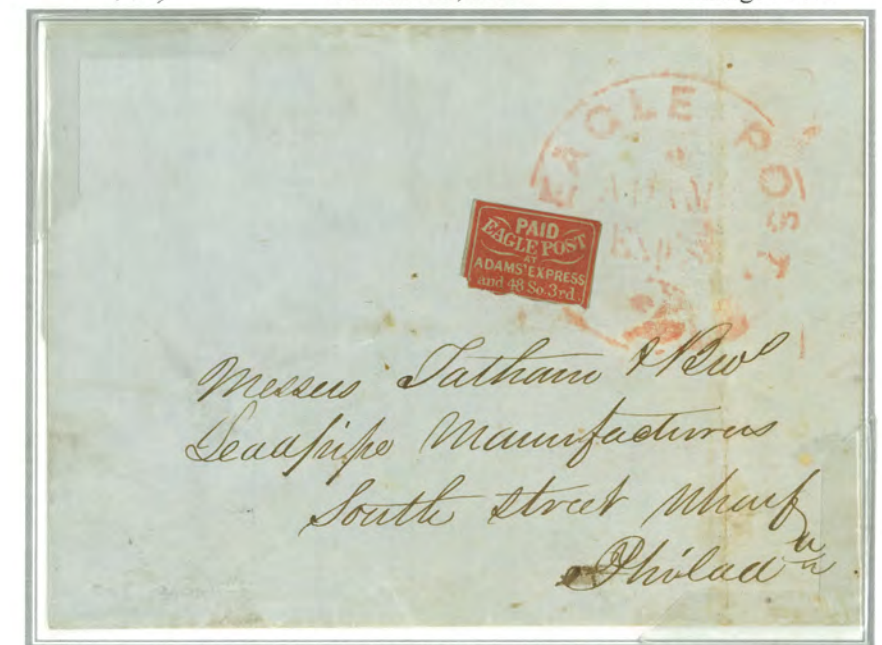 EAGLE POST
PAID
EAGLE POST
AT
ADAMS' EXPRESS
and 48 So. 3rd.
Messrs Tatham & Bros
Leadpipe Manufacturers
South Street Wharf
Philada